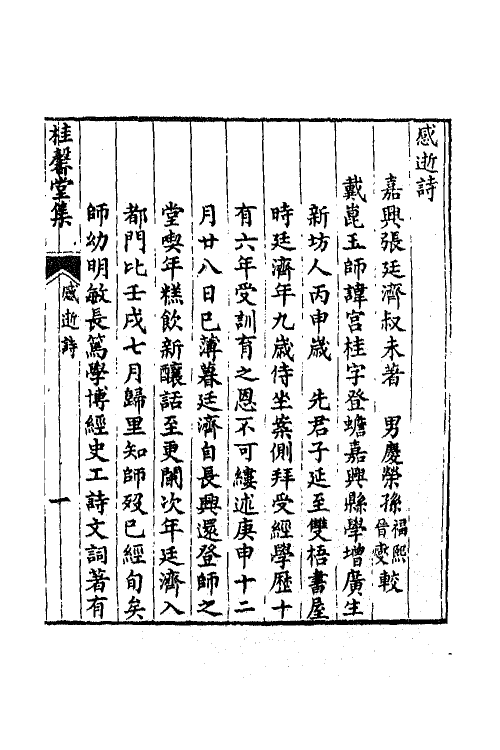 感逝詩
嘉興張廷濟叔未著　男慶榮孫福熙晉燮較
戴崑玉師諱宫桂字登蟾嘉興縣學增廣生
新坊人丙申歳　先君子延至雙梧書屋
時廷濟年九歳侍坐案側拜受經學歴十
有六年受訓育之恩不可縷述庚申十二
月廿八日已薄暮廷濟自長興還登師之
堂喫年糕飲新釀話至更闌次年廷濟入
都門比壬戌七月歸里知師歿已經旬矣
師幼明敏長篤學博經史工詩文詞著有
桂馨堂集
感逝詩
一